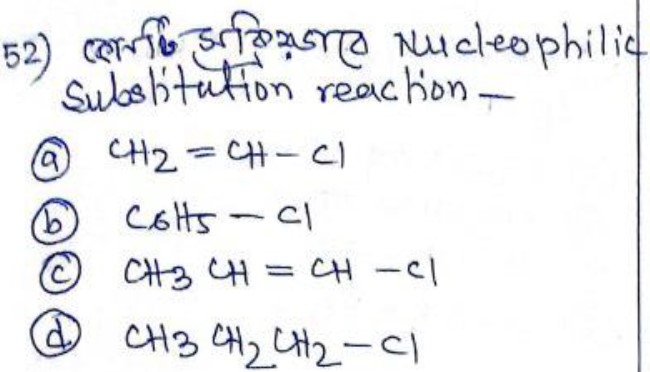 52) কোনটি সক্রিয়ভাবে Nucleophilic
Substitution reaction —
ⓐ CH2 = CH – Cl
ⓑ C6H5 – Cl
ⓒ CH3 CH = CH – Cl
ⓓ CH3 CH2 CH2 – Cl